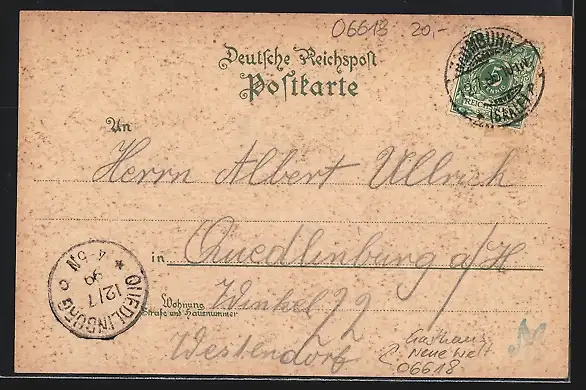 06618 20,-
Deutsche Reichspost
Postkarte
NAUMBURG
(SAALE)
REICHSPOST
An
Herrn Albert Ullrich
in Quedlinburg a/H
Wohnung
Straße und Hausnummer
Winkel 22
Westendorf
QUEDLINBURG
12/7
99
4-5N
Gasthaus
Neue Welt
06618